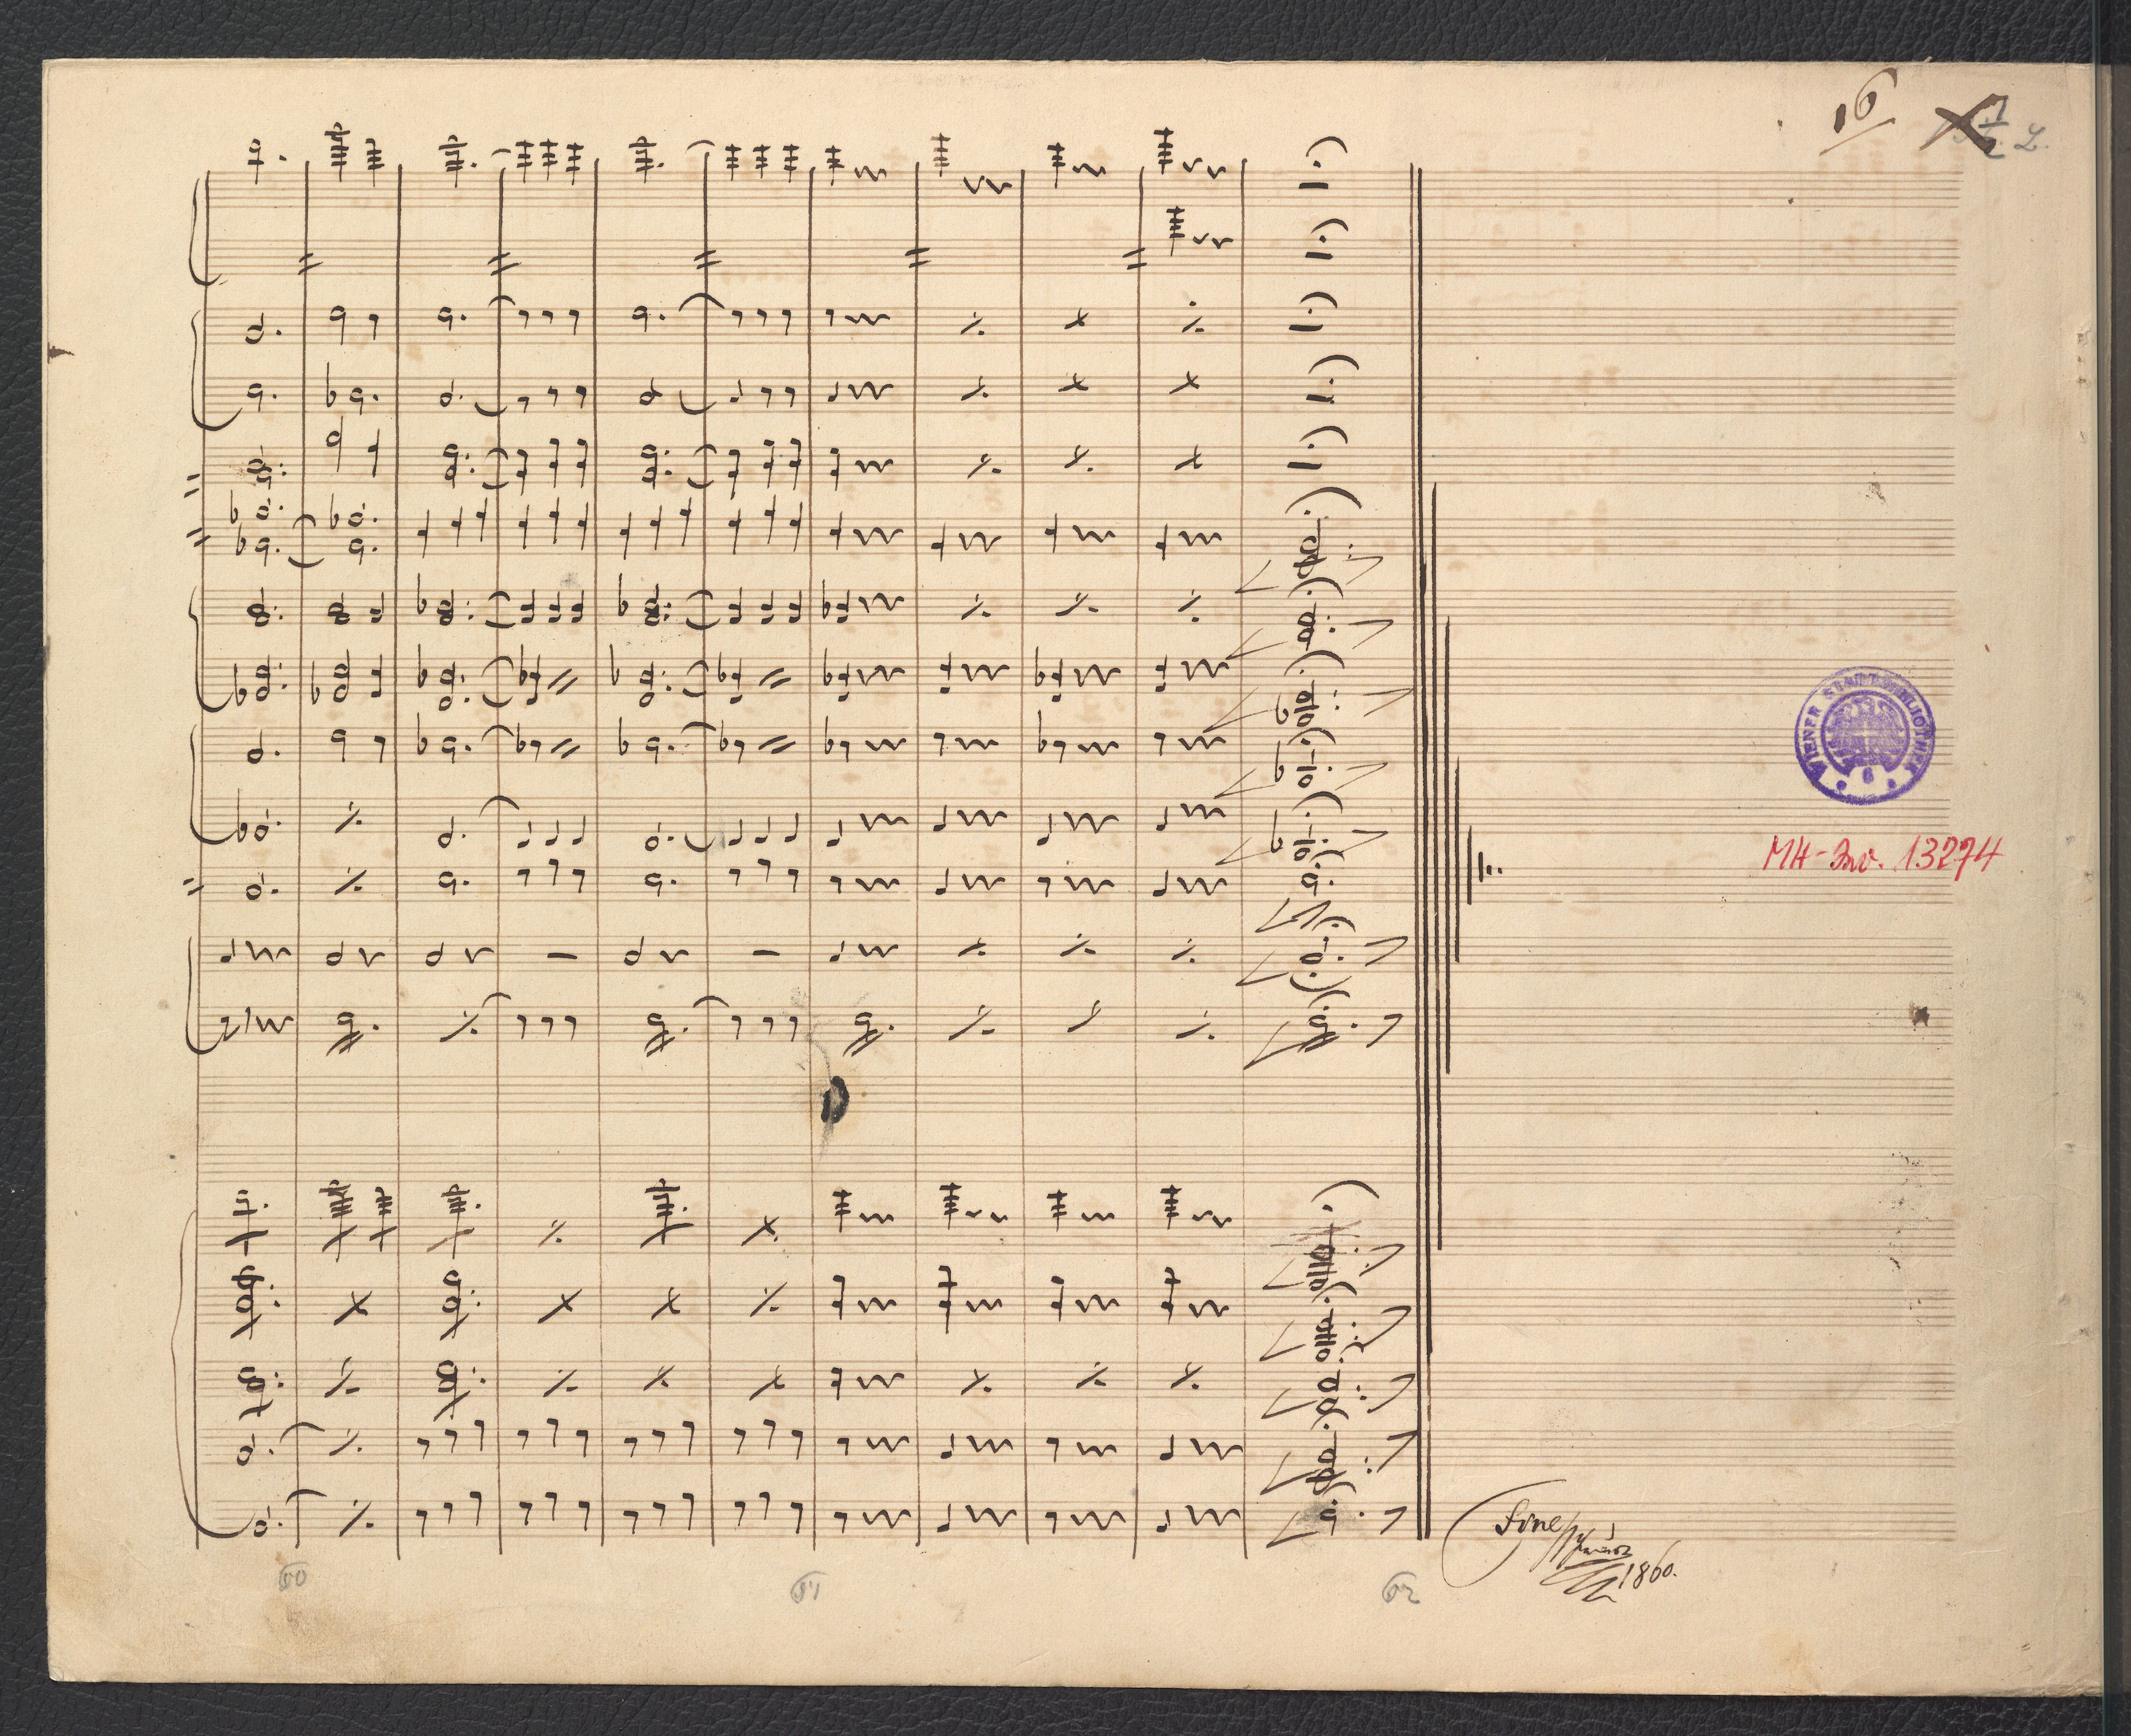 16
1/2 2.
WIENER STADTBIBLIOTHEK
6
MH-Inv. 13274
Fine
1860.
60
61
62